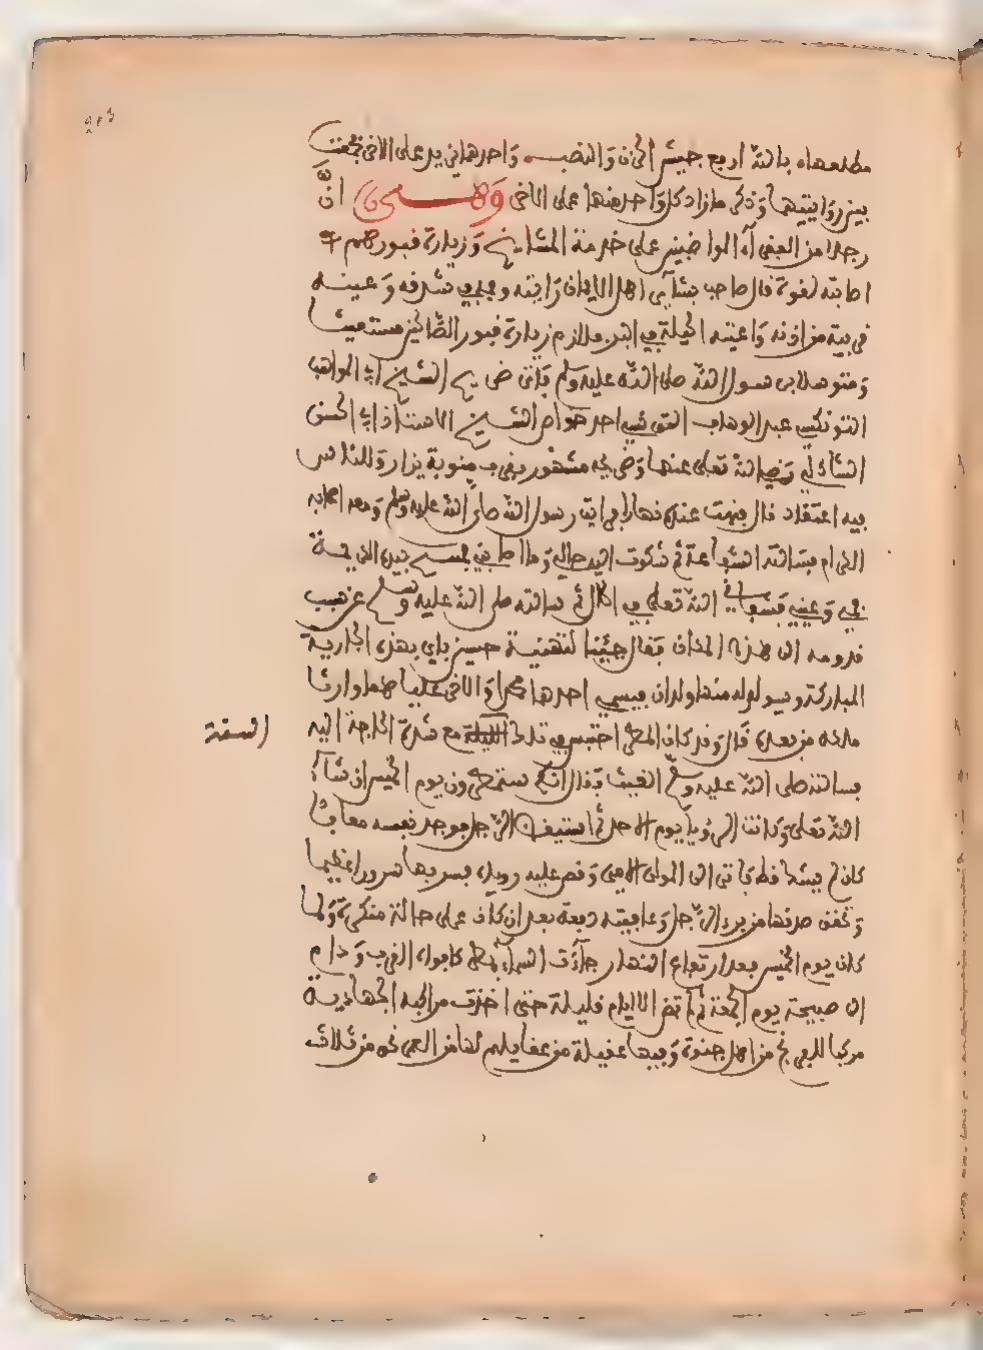 مطلعهاه بالله اربع جيش الحزن والنصب واحدهما يزيد على الاخر فجمعت
بين روايتيهما وذكر ما زاد كل واحد منهما على الاخر وهـــي ان
رجلا من الفقراء المواضبين على خدمة المشايخ وزيارة قبورهم
اصابته لقوة قال صاحب بشاير اهل الايمان رايته وهي في شدقه وعينه
في بيته من اذنه واعيته الحيلة في البرء فلازم زيارة قبور الصالحين مستغيثا
ومتوسلا برسول الله صلى الله عليه وسلم فاتى ضريح الشيخ ابي المواهب
التونسي عبد الوهاب احد خواص الشيخ الاستاذ ابي الحسن
الشاذلي رضي الله تعالى عنهما وضريحه مشهور بقرب منوبة يزار وللناس
فيه اعتقاد قال فنمت عنده نهارا فرايت رسول الله صلى الله عليه وسلم ومعه اصحابه
الكرام فسالته الشفاعة ثم شكوت اليه حالي وما اصابني فمسح بيده الكريمة
فمي وعيني فشفاني الله تعالى في الحال ثم سالته صلى الله عليه وسلم عن سبب
قدومه الى هذا المكان فقال جئنا لتهنية حسين باي بهذه الجارية
المباركة وسيولد له منها ولدان فيسمي احدهما محمدا والاخر عليا هما وارثا
ملكه من بعده قال وقد كان المطر احتبس في تلك السنة مع شدة الحاجة اليه
فسالته صلى الله عليه وسلم الغيث فقال انكم ستمطرون يوم الخميس ان شاء
الله تعالى وكانت الرؤيا يوم الاحد ثم استيقظ الرجل فوجد نفسه معافا
كان لم يشك قط فاتى الى المولى الامير وقص عليه رؤياه فسر بها سرورا عظيما
وتحقق صدقها من برء الرجل وعافيته دفعة بعد ان كان على حالة منكرة ولما
كان يوم الخميس بعد ارتفاع النهار جاءت السماء بمطر كافواه القرب ودام
الى صبيحة يوم الجمعة ثم لم تمض الا ايام قليلة حتى اخذت مراكبه الجهادية
مركبا للفرنج من اهل جنوة وفيها عقيلة من عقايلهم لها من العمر نحو من ثلاث